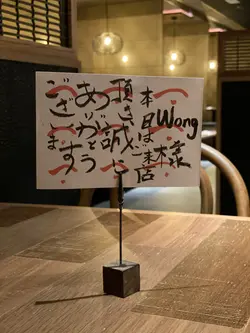 Wong様
本日はご来店
頂き誠に
ありがとう
ございます